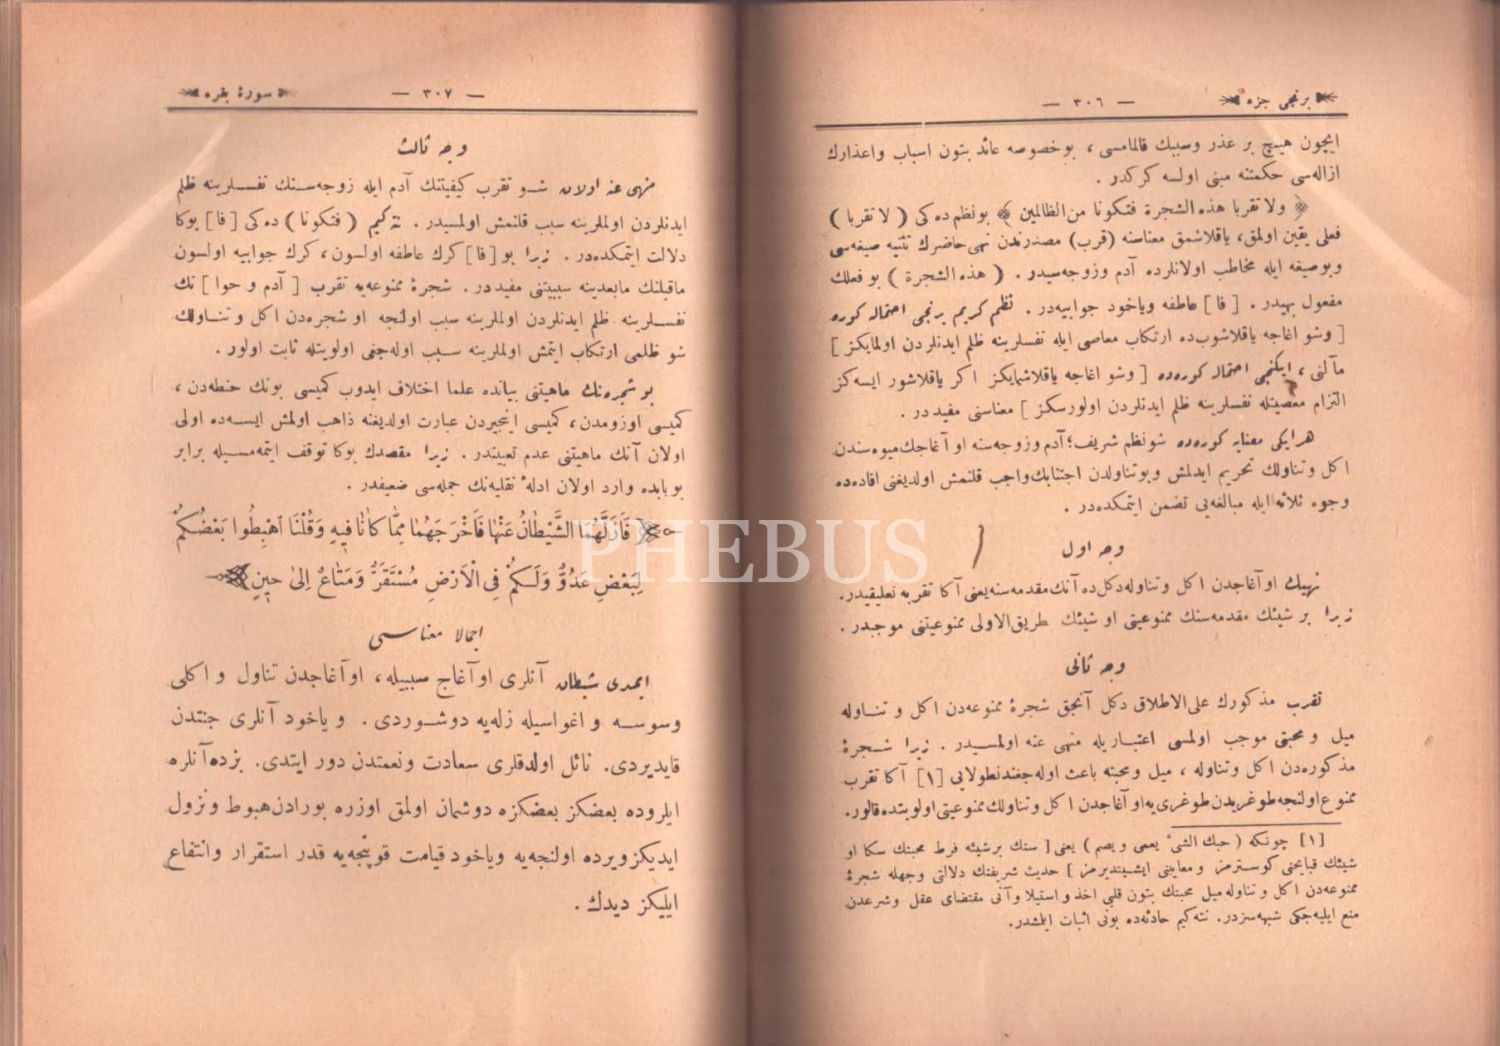 برنجی جزء
— ٣٠٦ —
ایچون هیچ بر عذر وسببك قالمامسی ، بوخصوصه عائد بتون اسباب واعذارك
ازاله‌سی حكمتنه مبنی اولسه كركدر .
﴿ ولا تقربا هذه الشجرة فتكونا من الظالمین ﴾ بونظم ده‌كی ( لا تقربا )
فعلی یقین اولمق، یاقلاشمق معناسنه (قرب) مصدرندن نهی حاضرك تثنیه صیغه‌سی
وبوصیغه ایله مخاطب اولانلرده آدم وزوجه‌سیدر . ( هذه الشجرة ) بو فعلك
مفعول بهیدر . [ فا ] عاطفه ویاخود جوابیه‌در . نظم كریم برنجی احتماله كوره
[ وشو اغاجه یاقلاشوب‌ده ارتكاب معاصی ایله نفسلرینه ظلم ایدنلردن اولمایكز ]
مآلنی ، ایكنجی احتماله كوره‌ده [ وشو اغاجه یاقلاشمایكز اكر یاقلاشور ایسه‌كز
التزام معصیتله نفسلرینه ظلم ایدنلردن اولورسكز ] معناسنی مفیددر .
هر ایكی معنایه كوره‌ده شونظم شریف؛ آدم وزوجه‌سنه او آغاجك میوه‌سندن
اكل وتناولك تحریم ایدلمش وبوتناولدن اجتنابك واجب قلنمش اولدیغنی افاده‌ده
وجوه ثلاثه ایله مبالغه‌یی تضمن ایتمكده‌در .
وجه اول
نهیك او آغاجدن اكل وتناوله دكل‌ده آنك مقدمه‌سنه یعنی آكا تقربه تعلیقیدر.
زیرا بر شیئك مقدمه‌سنك ممنوعیتی او شیئك طریق‌الاولی ممنوعیتنی موجبدر .
وجه ثانی
تقرب مذكورك علی‌الاطلاق دكل آنجق شجرهٔ ممنوعه‌دن اكل و تناوله
میل و محبتی موجب اولمسی اعتباریله منهی عنه اولمسیدر . زیرا شجرهٔ
مذكوره‌دن اكل وتناوله ، میل ومحبته باعث اوله‌جغندنطولایی [١] آكا تقرب
ممنوع اولنجه طوغریدن طوغری‌یه او آغاجدن اكل وتناولك ممنوعیتی اولویتده قالور.
[١] چونكه ( حبك الشیٔ یعمی ویصم ) یعنی [ سنك برشیئه فرط محبتك سكا او
شیئك قبایحنی كوسترمز ومعایبنی ایشیتدیرمز ] حدیث شریفنك دلالتی وجهله شجرهٔ
ممنوعه‌دن اكل وتناوله میل محبتك بتون قلبی اخذ واستیلا وآنی مقتضای عقل وشرعدن
منع ایلیه‌جكی شبهه‌سزدر. نته‌كیم حادثه‌ده بونی اثبات ایلمشدر.
سورهٔ بقره
— ٣٠٧ —
وجه ثالث
منهی عنه اولان شو تقرب كیفیتنك آدم ایله زوجه‌سنك نفسلرینه ظلم
ایدنلردن اولملرینه سبب قلنمش اولمسیدر . نته كیم ( فتكونا ) ده‌كی [ فا ] بوكا
دلالت ایتمكده‌در . زیرا بو [ فا ] كرك عاطفه اولسون، كرك جوابیه اولسون
ماقبلنك مابعدینه سببیتنی مفیددر . شجرهٔ ممنوعه‌یه تقرب [ آدم و حوا ] نك
نفسلرینه ظلم ایدنلردن اولملرینه سبب اولنجه او شجره‌دن اكل وتناولك
شو ظلمی ارتكاب ایتمش اولملرینه سبب اوله‌جغی اولویتله ثابت اولور .
بو شجره‌نك ماهیتنی بیانده علما اختلاف ایدوب كمیسی بونك حنطه‌دن ،
كمیسی اوزومدن، كمیسی انجیردن عبارت اولدیغنه ذاهب اولمش ایسه‌ده اولی
اولان آنك ماهیتنی عدم تعییندر . زیرا مقصدك بوكا توقف ایتمه‌مسیله برابر
بوبابده وارد اولان ادلهٔ نقلیه‌نك جمله‌سی ضعیفدر .
﴿ فَاَزَلَّهُمَا الشَّيْطَانُ عَنْهَا فَاَخْرَجَهُمَا مِمَّا كَانَا فِيهِ وَقُلْنَا اهْبِطُوا بَعْضُكُمْ
لِبَعْضٍ عَدُوٌّ وَلَكُمْ فِى الْاَرْضِ مُسْتَقَرٌّ وَمَتَاعٌ اِلىٰ حِينٍ ﴾
اجمالا معناسی
ایمدی شیطان آنلری او آغاج سببیله، او آغاجدن تناول و اكلی
وسوسه و اغواسیله زله‌یه دوشوردی . و یاخود آنلری جنتدن
قایدیردی. نائل اولدقلری سعادت ونعمتدن دور ایتدی. بزده آنلره
ایلروده بعضكز بعضكزه دوشمان اولمق اوزره بورادن هبوط ونزول
ایدیكز ویرده اولنجه‌یه ویاخود قیامت قوپنجه‌یه قدر استقرار وانتفاع
ایلیكز دیدك .
PHEBUS